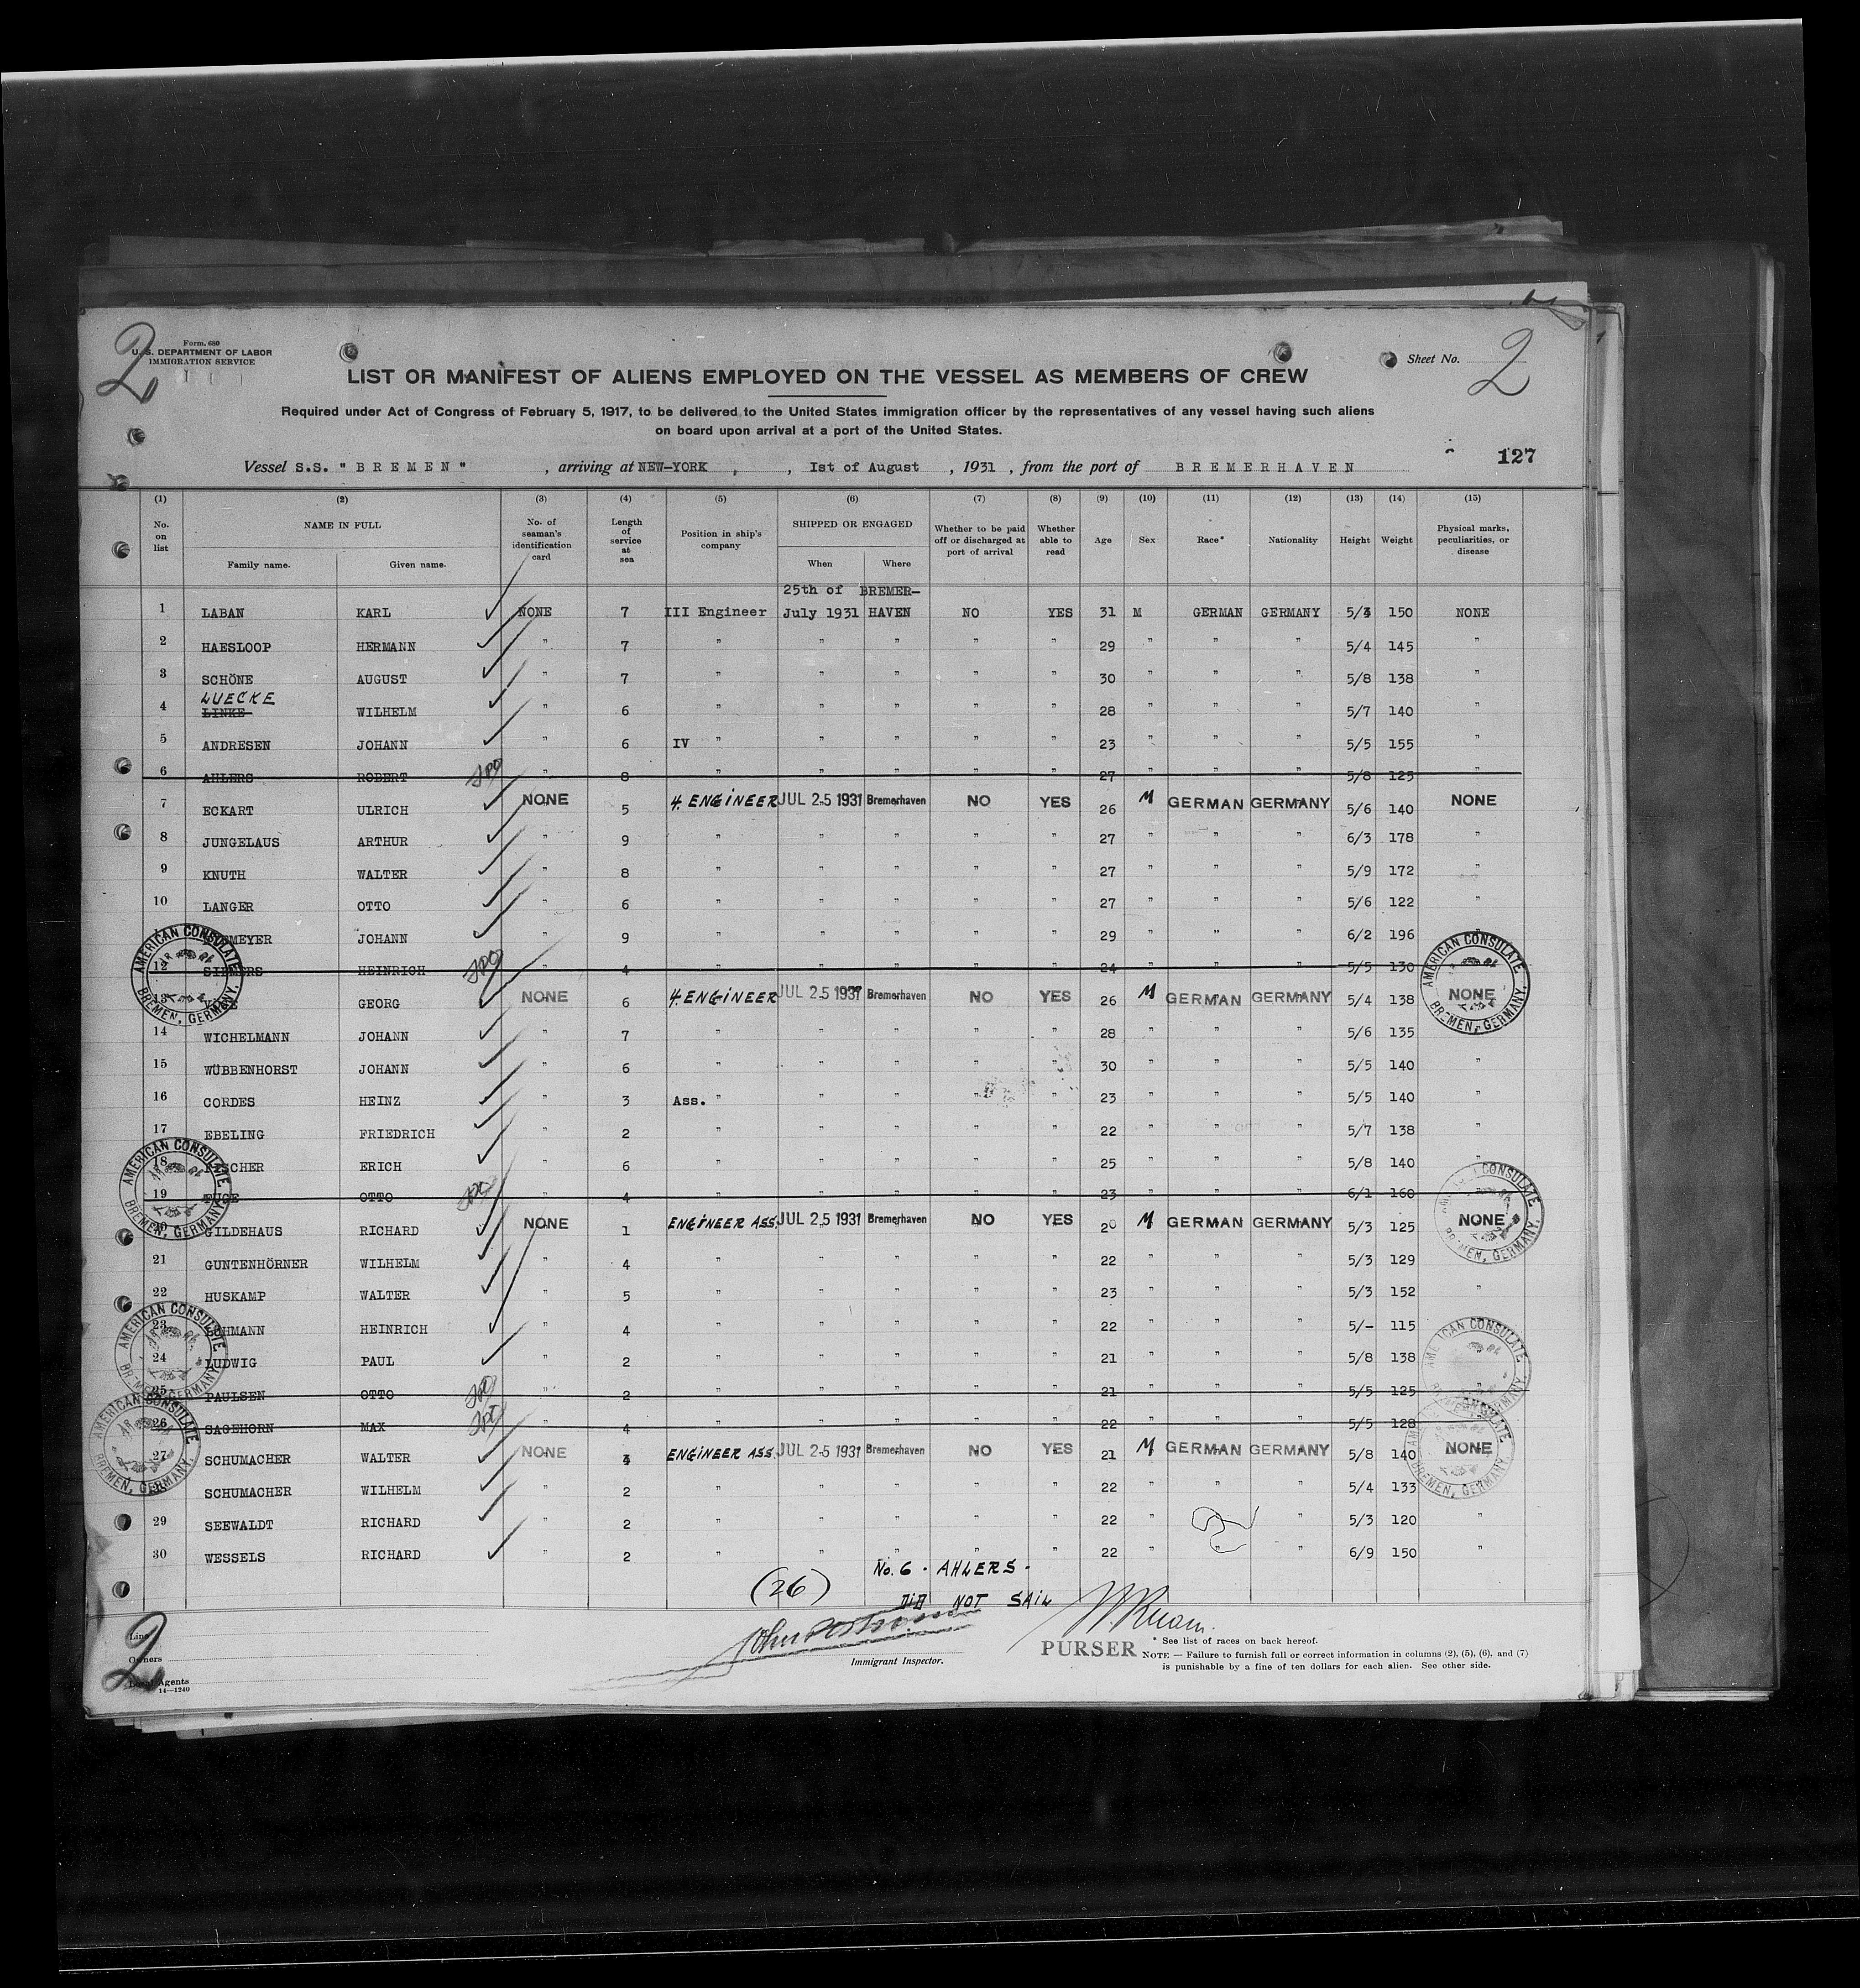 2
Form. 680
U. S. DEPARTMENT OF LABOR
IMMIGRATION SERVICE
Sheet No. 2
LIST OR MANIFEST OF ALIENS EMPLOYED ON THE VESSEL AS MEMBERS OF CREW
Required under Act of Congress of February 5, 1917, to be delivered to the United States immigration officer by the representatives of any vessel having such aliens
on board upon arrival at a port of the United States.
127
Vessel S.S. " B R E M E N " , arriving at NEW-YORK , , Ist of August , 1931 , from the port of B R E M E R H A V E N
(1) (2) (3) (4) (5) (6) (7) (8) (9) (10) (11) (12) (13) (14) (15)
No. on list NAME IN FULL Family name. Given name. No. of seaman's identification card Length of service at sea Position in ship's company SHIPPED OR ENGAGED When Where Whether to be paid off or discharged at port of arrival Whether able to read Age Sex Race* Nationality Height Weight Physical marks, peculiarities, or disease
25th of BREMER-
1 LABAN KARL NONE 7 III Engineer July 1931 HAVEN NO YES 31 M GERMAN GERMANY 5/4 150 NONE
2 HAESLOOP HERMANN " 7 " " " " " 29 " " " 5/4 145 "
3 SCHÖNE AUGUST " 7 " " " " " 30 " " " 5/8 138 "
LUECKE
4 LINKE WILHELM " 6 " " " " " 28 " " " 5/7 140 "
5 ANDRESEN JOHANN " 6 IV " " " " " 23 " " " 5/5 155 "
6 AHLERS ROBERT " 8 " " " " " 27 " " " 5/8 125 "
7 ECKART ULRICH NONE 5 4. ENGINEER JUL 25 1931 Bremerhaven NO YES 26 M GERMAN GERMANY 5/6 140 NONE
8 JUNGELAUS ARTHUR " 9 " " " " " 27 " " " 6/3 178 "
9 KNUTH WALTER " 8 " " " " " 27 " " " 5/9 172 "
10 LANGER OTTO " 6 " " " " " 27 " " " 5/6 122 "
MEYER JOHANN " 9 " " " " " 29 " " " 6/2 196
12 SIEMERS HEINRICH " 4 " " " " " 24 " " " 5/5 130
13 GEORG NONE 6 4. ENGINEER JUL 25 1931 Bremerhaven NO YES 26 M GERMAN GERMANY 5/4 138 NONE
14 WICHELMANN JOHANN " 7 " " " " " 28 " " " 5/6 135
15 WÜBBENHORST JOHANN " 6 " " " " " 30 " " " 5/5 140 "
16 CORDES HEINZ " 3 Ass. " " " " " 23 " " " 5/5 140 "
17 EBELING FRIEDRICH " 2 " " " " " 22 " " " 5/7 138 "
18 FISCHER ERICH " 6 " " " " " 25 " " " 5/8 140 "
19 FUGE OTTO " 4 " " " " " 23 " " " 6/1 160
20 GILDEHAUS RICHARD NONE 1 ENGINEER ASS. JUL 25 1931 Bremerhaven NO YES 20 M GERMAN GERMANY 5/3 125 NONE
21 GUNTENHÖRNER WILHELM " 4 " " " " " 22 " " " 5/3 129
22 HUSKAMP WALTER " 5 " " " " " 23 " " " 5/3 152 "
23 HEINRICH " 4 " " " " " 22 " " " 5/– 115
24 LUDWIG PAUL " 2 " " " " " 21 " " " 5/8 138
25 PAULSEN OTTO " 2 " " " " " 21 " " " 5/5 125 "
26 SAGEHORN MAX " 4 " " " " " 22 " " " 5/5 128
27 SCHUMACHER WALTER NONE 3 ENGINEER ASS. JUL 25 1931 Bremerhaven NO YES 21 M GERMAN GERMANY 5/8 140 NONE
SCHUMACHER WILHELM " 2 " " " " " 22 " " " 5/4 133
29 SEEWALDT RICHARD " 2 " " " " " 22 " " 5/3 120 "
30 WESSELS RICHARD " 2 " " " " " 22 " " " 6/9 150 "
AMERICAN CONSULATE BREMEN, GERMANY.
AMERICAN CONSULATE BREMEN, GERMANY.
AMERICAN CONSULATE BREMEN, GERMANY.
AMERICAN CONSULATE BREMEN, GERMANY.
AMERICAN CONSULATE BREMEN, GERMANY.
AMERICAN CONSULATE BREMEN, GERMANY.
AMERICAN CONSULATE BREMEN, GERMANY.
AMERICAN CONSULATE BREMEN, GERMANY.
(26) No. 6 . AHLERS .
DID NOT SAIL
2
Line
Owners
Local Agents
14—1240
Immigrant Inspector.
PURSER
* See list of races on back hereof.
NOTE — Failure to furnish full or correct information in columns (2), (5), (6), and (7)
is punishable by a fine of ten dollars for each alien. See other side.